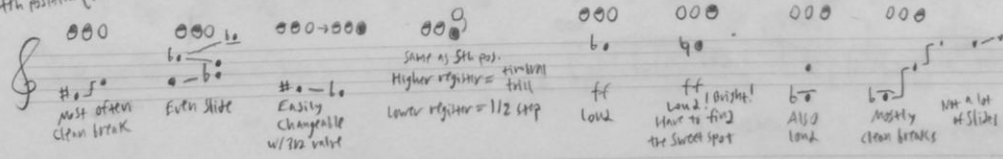 4th position
Most often
clean break
Even slide
Easily
Changeable
w/3rd valve
Same as 5th pos.
Higher register = timbral
trill
Lower register = 1/2 step
ff
Loud
ff
Loud! Bright!
Have to find
the sweet spot
Also
loud
Mostly
clean breaks
Not a lot
of slides